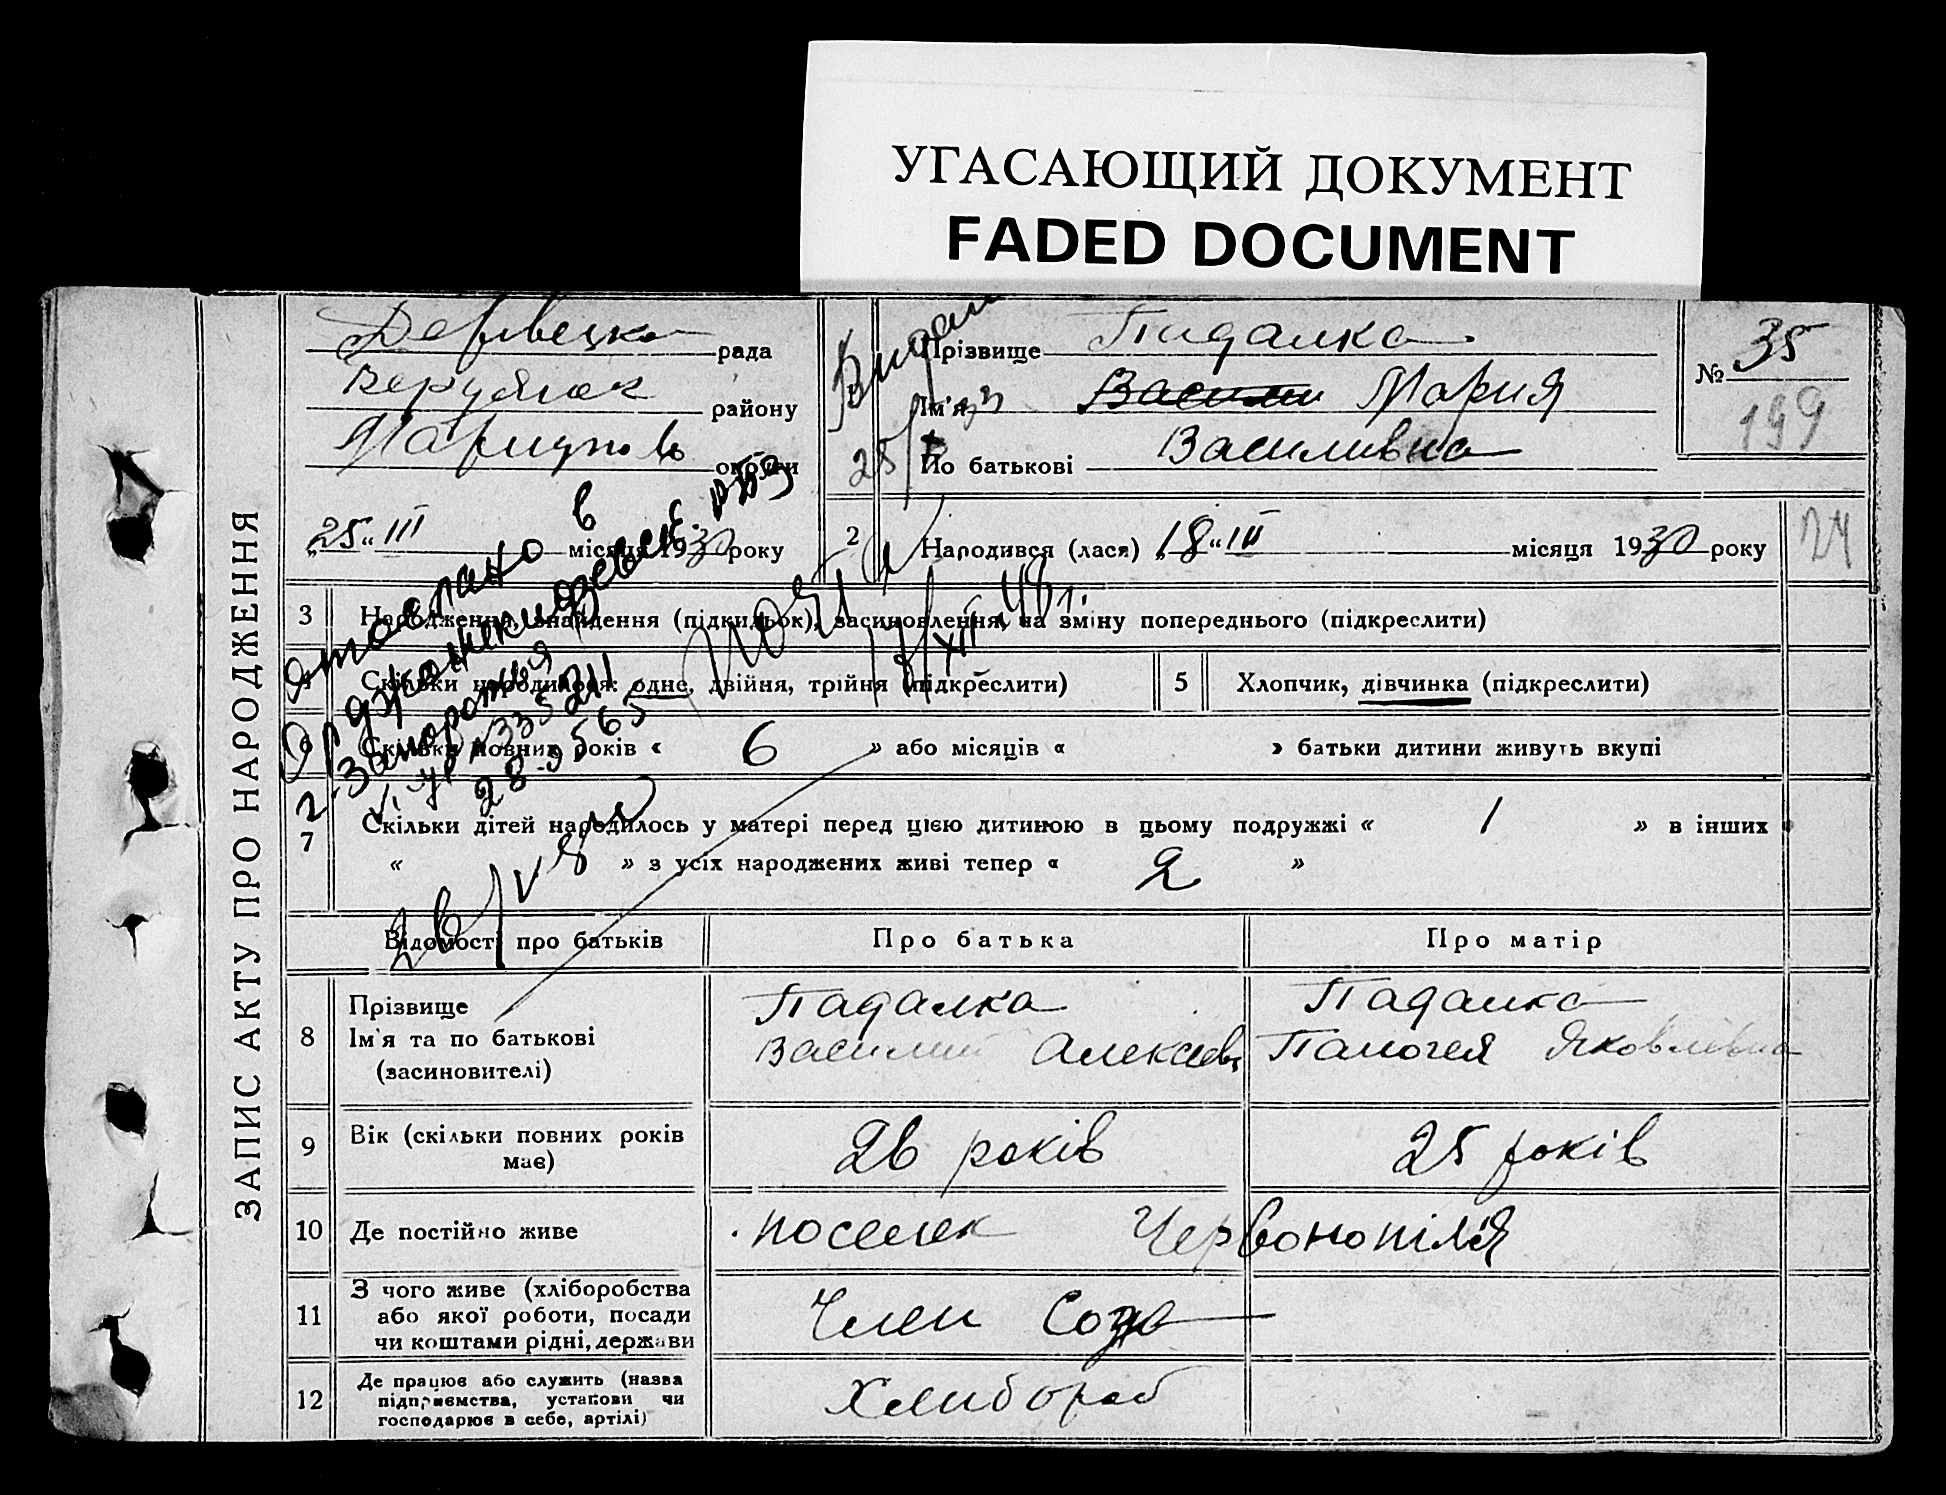 УГАСАЮЩИЙ ДОКУМЕНТ
FADED DOCUMENT
ЗАПИС АКТУ ПРО НАРОДЖЕННЯ
рада
району
Маріуполь округи
„25“ III місяця 1930 року
Прізвище Падалка
Ім'я Василий Мария
По батькові Василивна
№ 35
199
24
2 Народився (лася) „18“ III місяця 1930 року
3 Народження, знайдення (підкидьок), засиновлення, на зміну попереднього (підкреслити)
4 Скільки народилося: одне, двійня, трійня (підкреслити)
5 Хлопчик, дівчинка (підкреслити)
6 Скільки повних років « 6 » або місяців « » батьки дитини живуть вкупі
7 Скільки дітей народилось у матері перед цією дитиною в цьому подружжі « 1 » в інших «
« » з усіх народжених живі тепер « 2 »
Відомості про батьків Про батька Про матір
8 Прізвище Падалка Падалка
Ім'я та по батькові Василий Алексеев Яковлевна
(засиновителі)
9 Вік (скільки повних років має) 26 років 25 років
10 Де постійно живе поселек Червонопілля
11 З чого живе (хліборобства
або якої роботи, посади Член Соза
чи коштами рідні, держави
12 Де працює або служить (назва
підприємства, установи чи Хлибороб
господарює в себе, артілі)